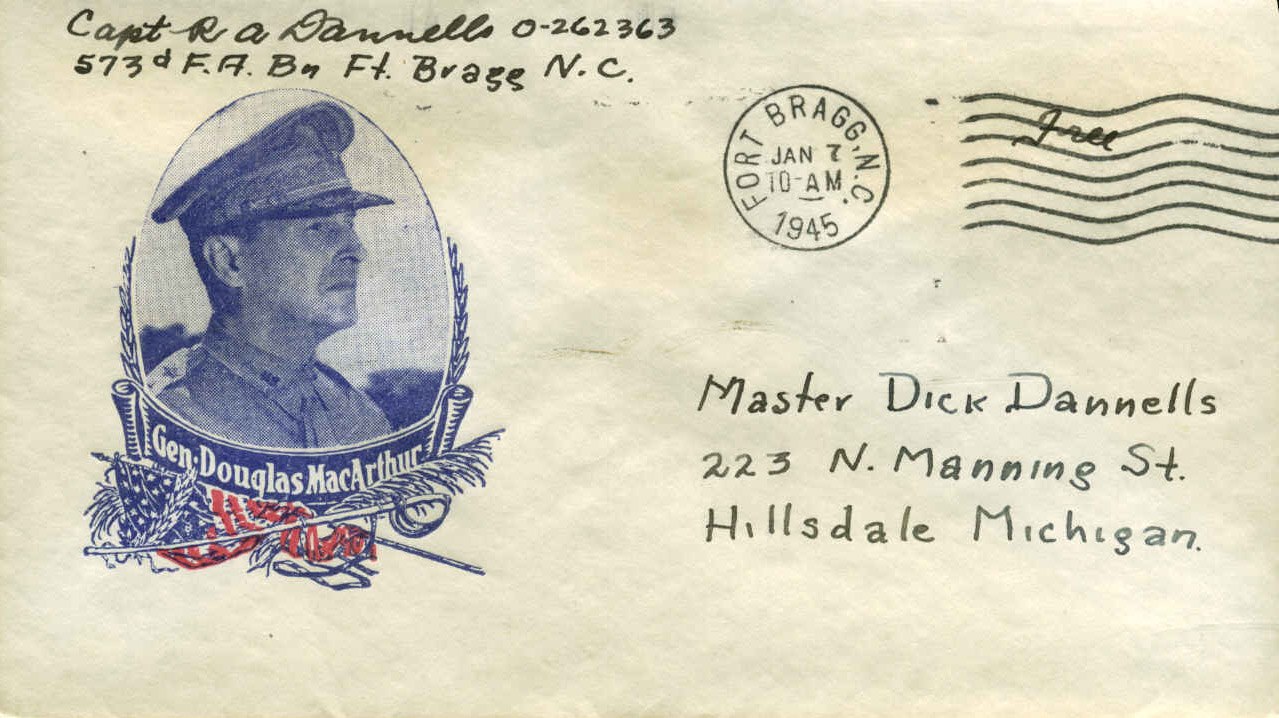 Capt R A Dannells O-262363
573d F.A. Bn Ft. Bragg N.C.
FORT BRAGG, N.C.
JAN 7
10-AM
1945
Free
Gen. Douglas MacArthur
Master Dick Dannells
223 N. Manning St.
Hillsdale Michigan.